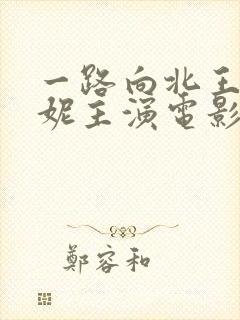 一路向北王
妮主演电影
鄭容和